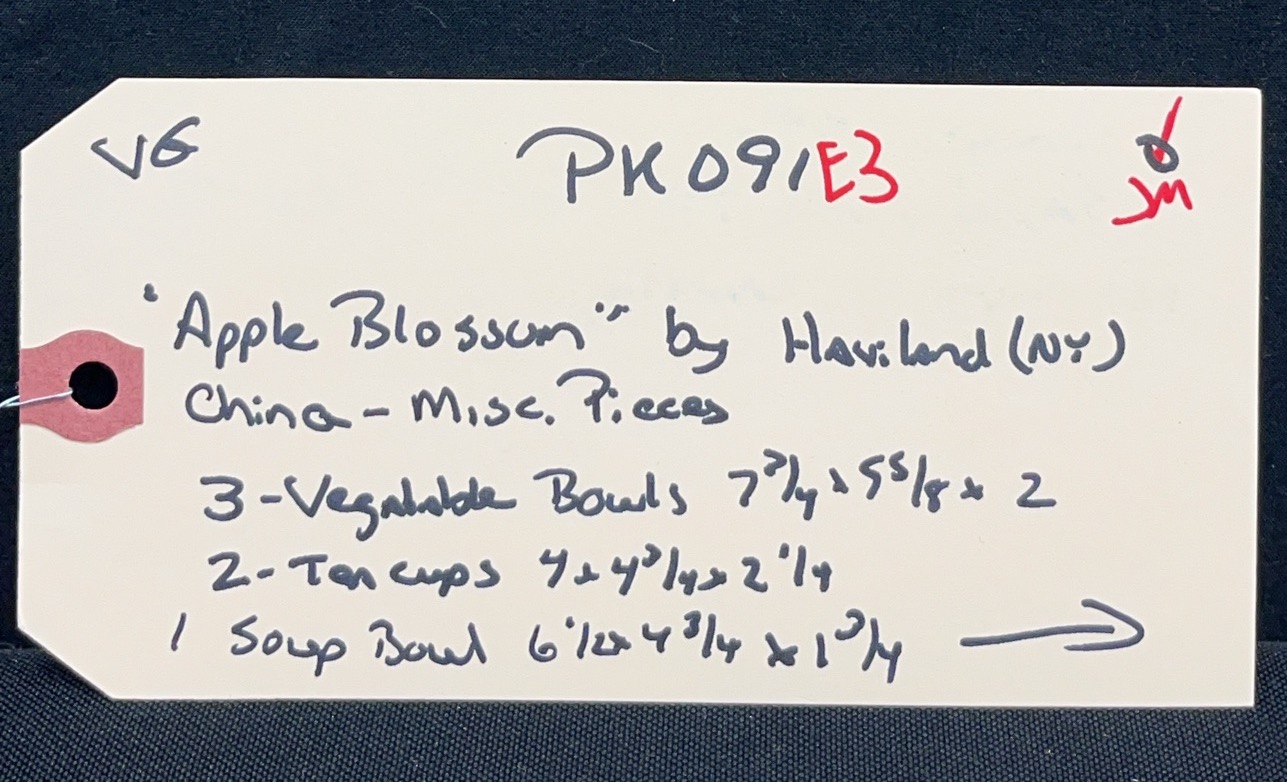 VG PK091E3 JM
"Apple Blossom" by Haviland (NY)
China - Misc. Pieces
3 - Vegatable Bowls 7 3/4 x 5 5/8 x 2
2 - Tea cups 4 x 4 3/4 x 2 1/4
1 Soup Bowl 6 1/2 x 4 3/4 x 1 3/4 →